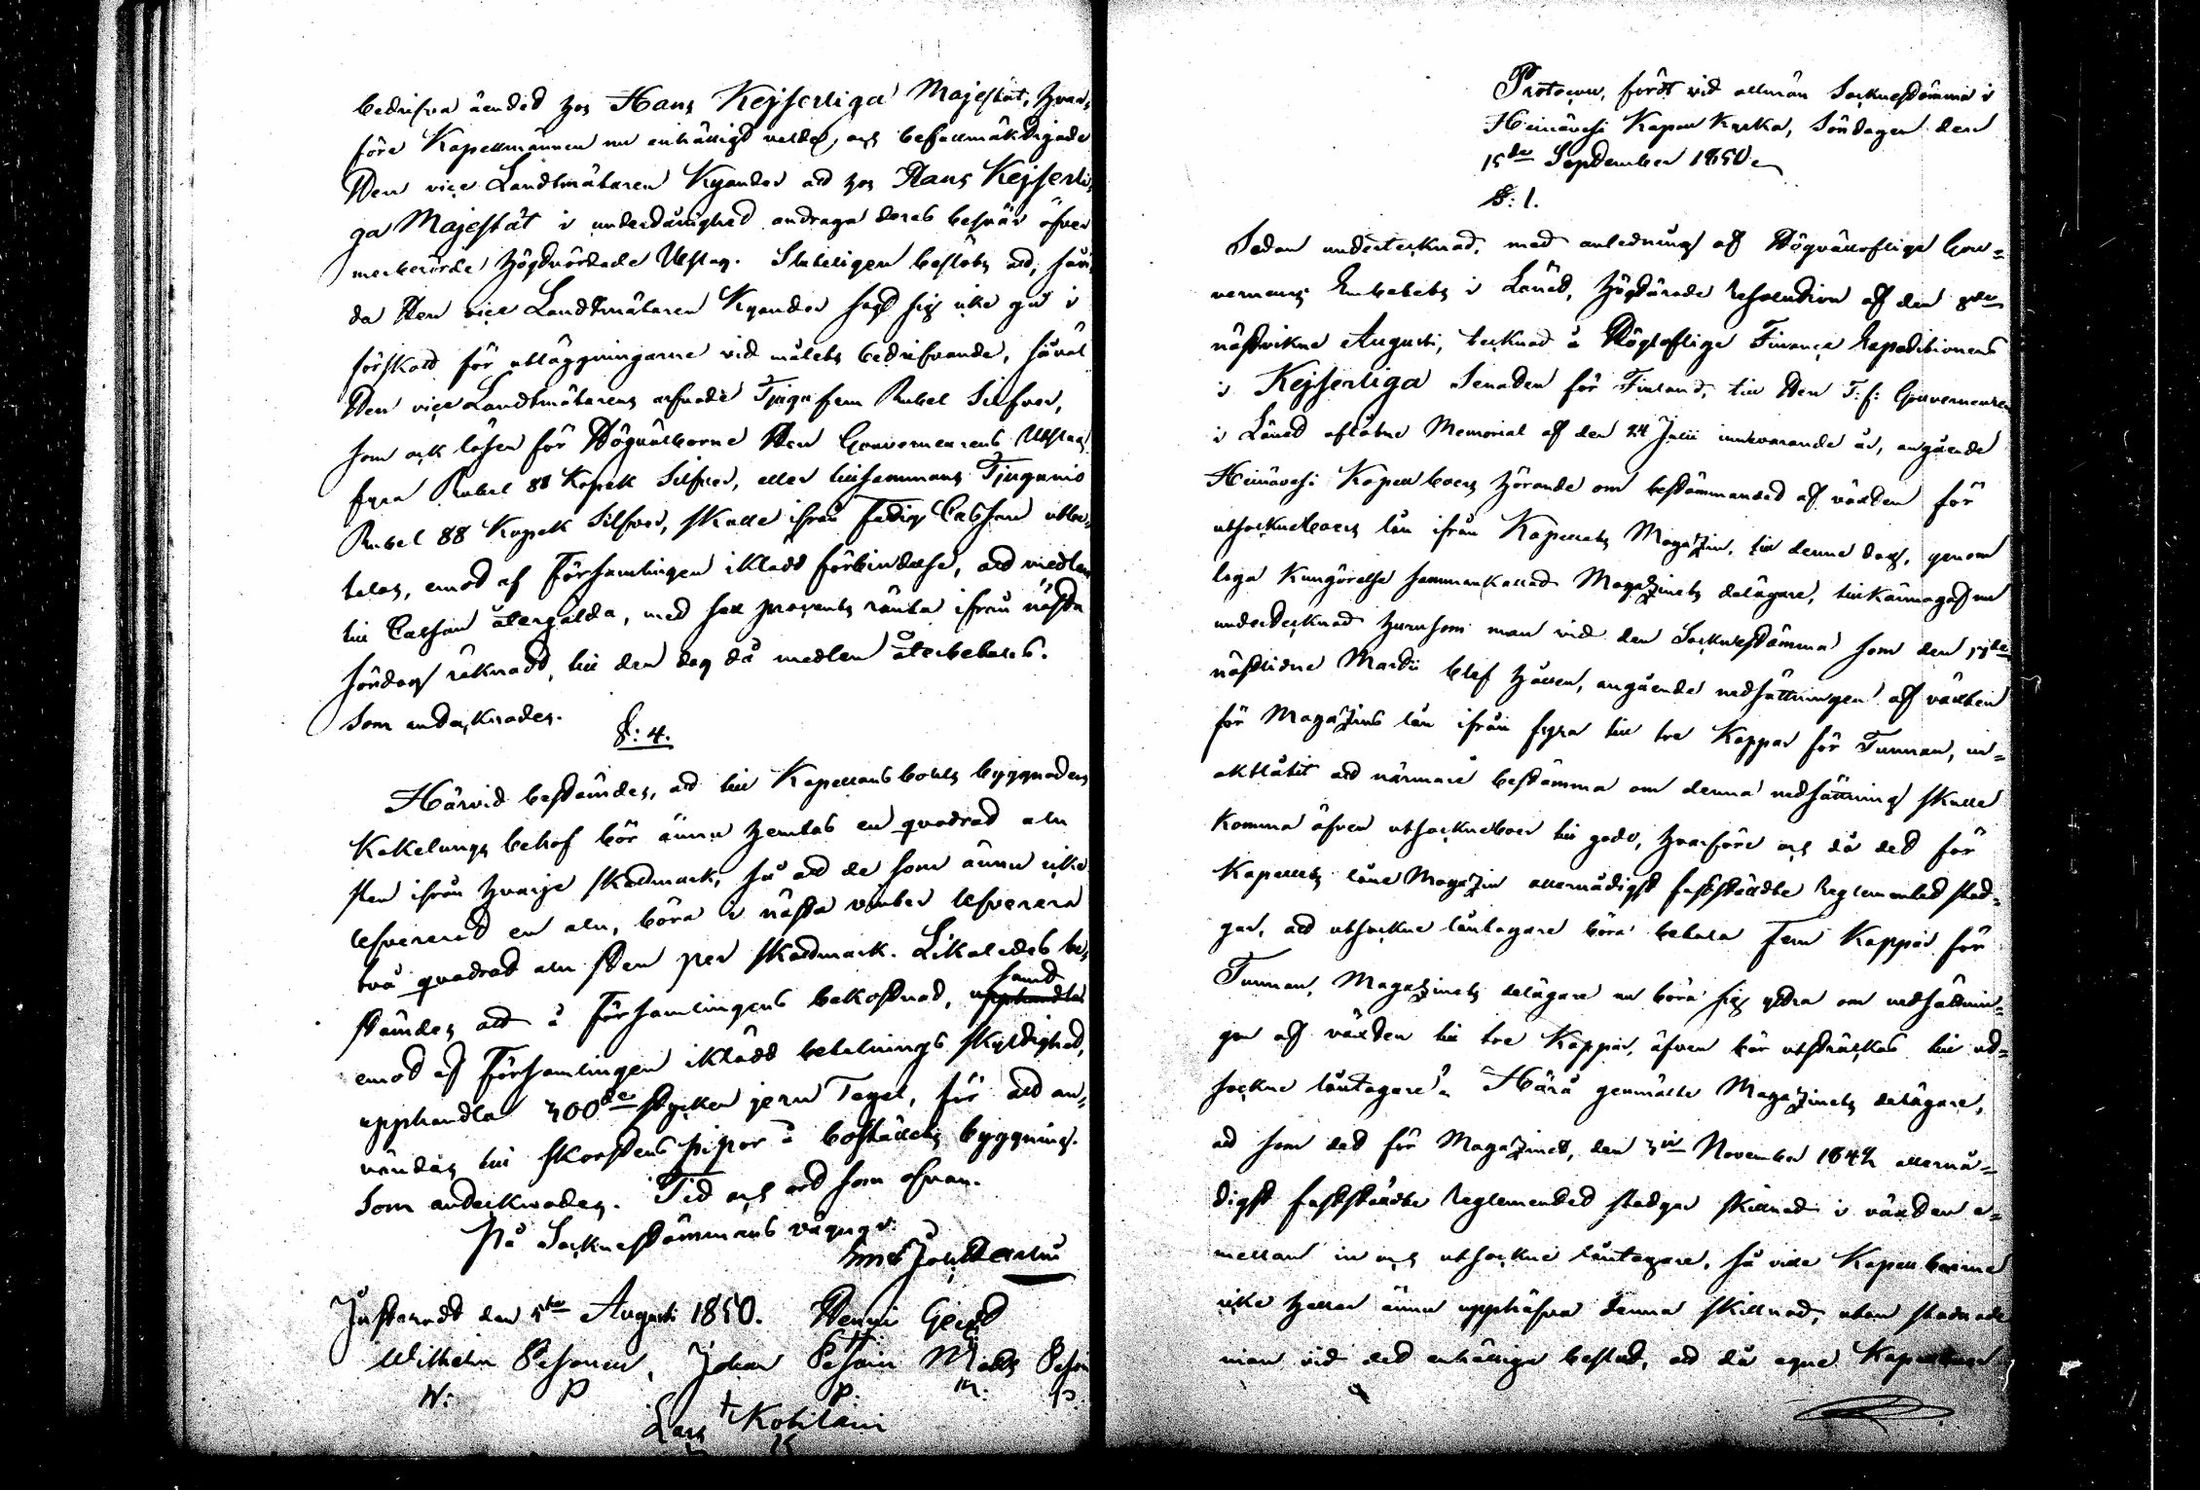 bedrifva ärendet hos Hans Kejserliga Majestät, hvar,
före Kapellmännen nu enhälligt valde, och befullmäktigade
Herr vice Landtmätaren Kyander att hos Hans Kejserli,
ga Majestät i underdånighet andraga deras besvär öfver
merberörde högtvördade Utslag. Sluteligen beslöts att, som
da Herr vice Landtmätaren Kyander sagt sig icke gå i
förskott för utläggningarne vid målets bedrifvande, såväl
Herr vice Landtmätarens arfvode Tjugufem Rubel Silfver,
som ock lösen för Högvälborne Herr Gouverneurens Utslag
fyra Rubel 88 Kopek Silfver, eller tillsammans Tjugunio
Rubel 88 Kopek Silfver, skulle ifrån Fattig Cassan utbe,
talas, emot af Församlingen ikladd förbindelse, att medlen
till Cassan återgälda, med sex procents ränta ifrån nästa
söndag räknadt, till den dag då medlen återbetalas.
Som antecknades.
§: 4.
Härvid bestämdes, att till Kapellansbohls byggnadens
Kakelungs behof bör ännu hemtas en quadrat aln
sten ifrån hvarje skattmark, så att de som ännu icke
lefvererat en aln, böra i nästa vinter lefverera
två quadrat aln sten per skattmark. Likaledes be,
stämdes att å Församlingens bekostnad, samt
emot af Församlingen iklädd betalnings skyldighet,
upphandla 300de stycken jern Tegel, för att an,
vändas till skorstens pipor å boställets byggning.
Som antecknades. Tid och ort som ofvan.
På Socknestämmans vägnar:
Justeradt den 5te Augusti 1850. Henric
Wilhelm Pesonen, Johan Matts
W: P P. M: P.
Lars Kohilain
K
Protocoll, fördt vid allmän Socknestämma i
Heinävesi Kapell Kyrka, Söndagen den
15de September 1850.
§: 1.
Sedan undertecknad, med anledning af Högvällofliga Gou=
vernements Embetets i Länet, högtärade resolution af den 8de
nästvikne Augusti, tecknad å Högloflige Finance Expeditionens
i Kejserliga Senaten för Finland, till Herr T: f: Gouverneuren
i Länet aflåtne Memorial af den 24 Julii innevarande år, angående
Heinävesi Kapellboers hörande om bestämmandet af växten för
utsockneboers lån ifrån Kapellets Magazin, till denne dag, genom
laga kungörelse sammankallat Magazinets delägare, tillkännagaf nu
undertecknad hurusom man vid den Socknestämma som den 17de
nästlidne Martii blef hållen, angående nedsättningen af växten
för Magazins lån ifrån fyra till tre Kappar för Tunnan, un=
aktlåtit att närmare bestämma om denna nedsättning skulle
komma äfven utsockneboer till godo, hvarföre och då det för
Kapellets låne Magazin allernådigst fastställdte Reglementet stad=
gar, att utsockne låntagare böra betala Fem Kappar för
Tunnan, Magazinets delägare nu böra sig yttra om nedsättnin=
gen af växten till tre Kappar, äfven bör utsträckas till ut=
sockne låntagare? Härå genmälte Magazinets delägare,
att som det för Magazinet, den 3die November 1842 allernå=
digst fastställdte Reglementet stadgar skillnad i växten e=
mellan in och utsockne låntagare, så ville Kapellboerne
icke heller ännu upphäfva denna skillnad, utan stadnade
man vid det enhälliga beslut, att då egne